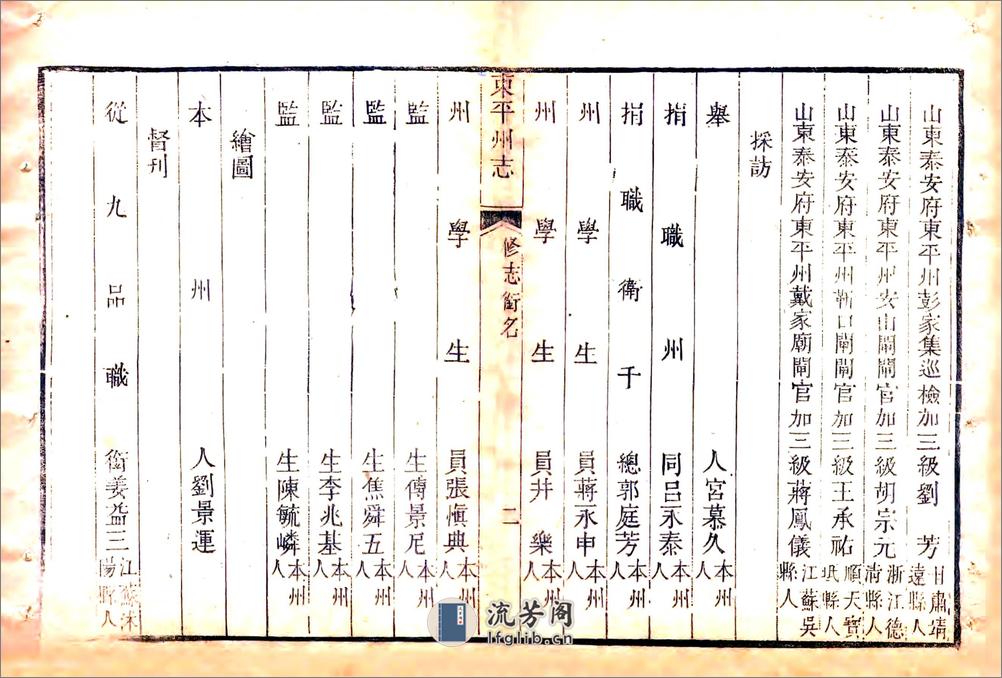 山東泰安府東平州彭家集巡檢加三級劉　芳甘肅靖遠縣人
山東泰安府東平州安山閘閘官加三級胡宗元浙江德清縣人
山東泰安府東平州靳口閘閘官加三級王承祐順天寶坻縣人
山東泰安府東平州戴家廟閘閘官加三級蔣鳳儀江蘇吳縣人
採訪
舉人宮慕久本州人
捐職州同呂永泰本州人
捐職衛千總郭庭芳
州學生員蔣永申
州學生員井樂本州人
東平州志
修志銜名
二
州學生員張愼典本州人
監生傅景尼本州人
監生焦舜五本州人
監生李兆基本州人
監生陳毓嶙本州人
繪圖
本州人劉景運
督刊
從九品職銜姜益三江蘇沭陽縣人
流芳阁
lfglib.cn